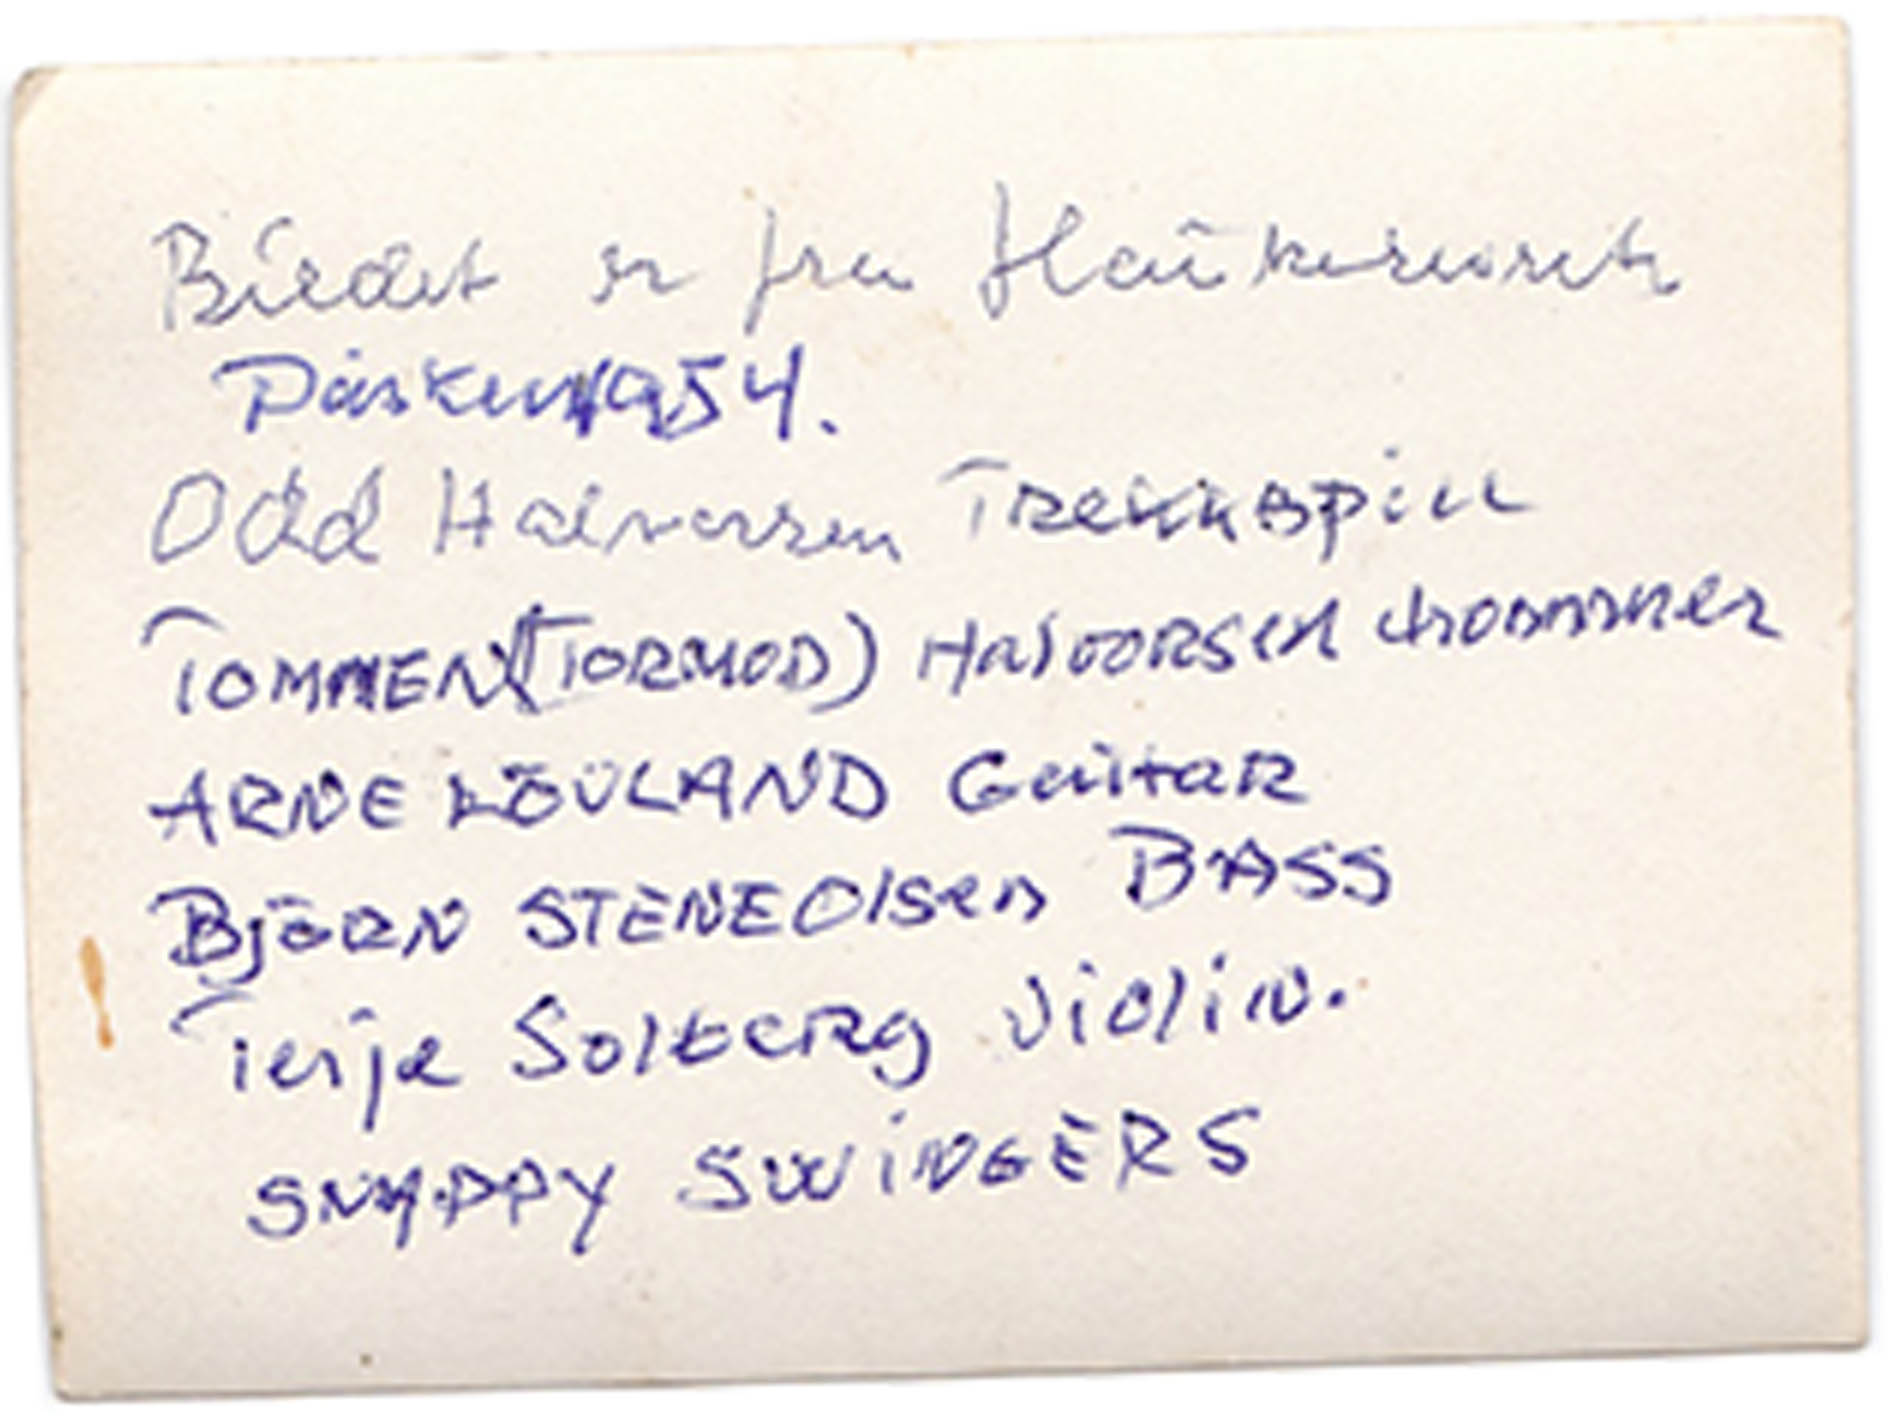 Bildet er fra Haukeliseter
Påsken 1954.
Odd Halvorsen Trekkspill
TOMMEN (TORMOD) Halvorsen trommer
ARNE LÖVLAND Guitar
Björn STENEOlsen BASS
Terje Solberg Violin.
SNAPPY SWINGERS